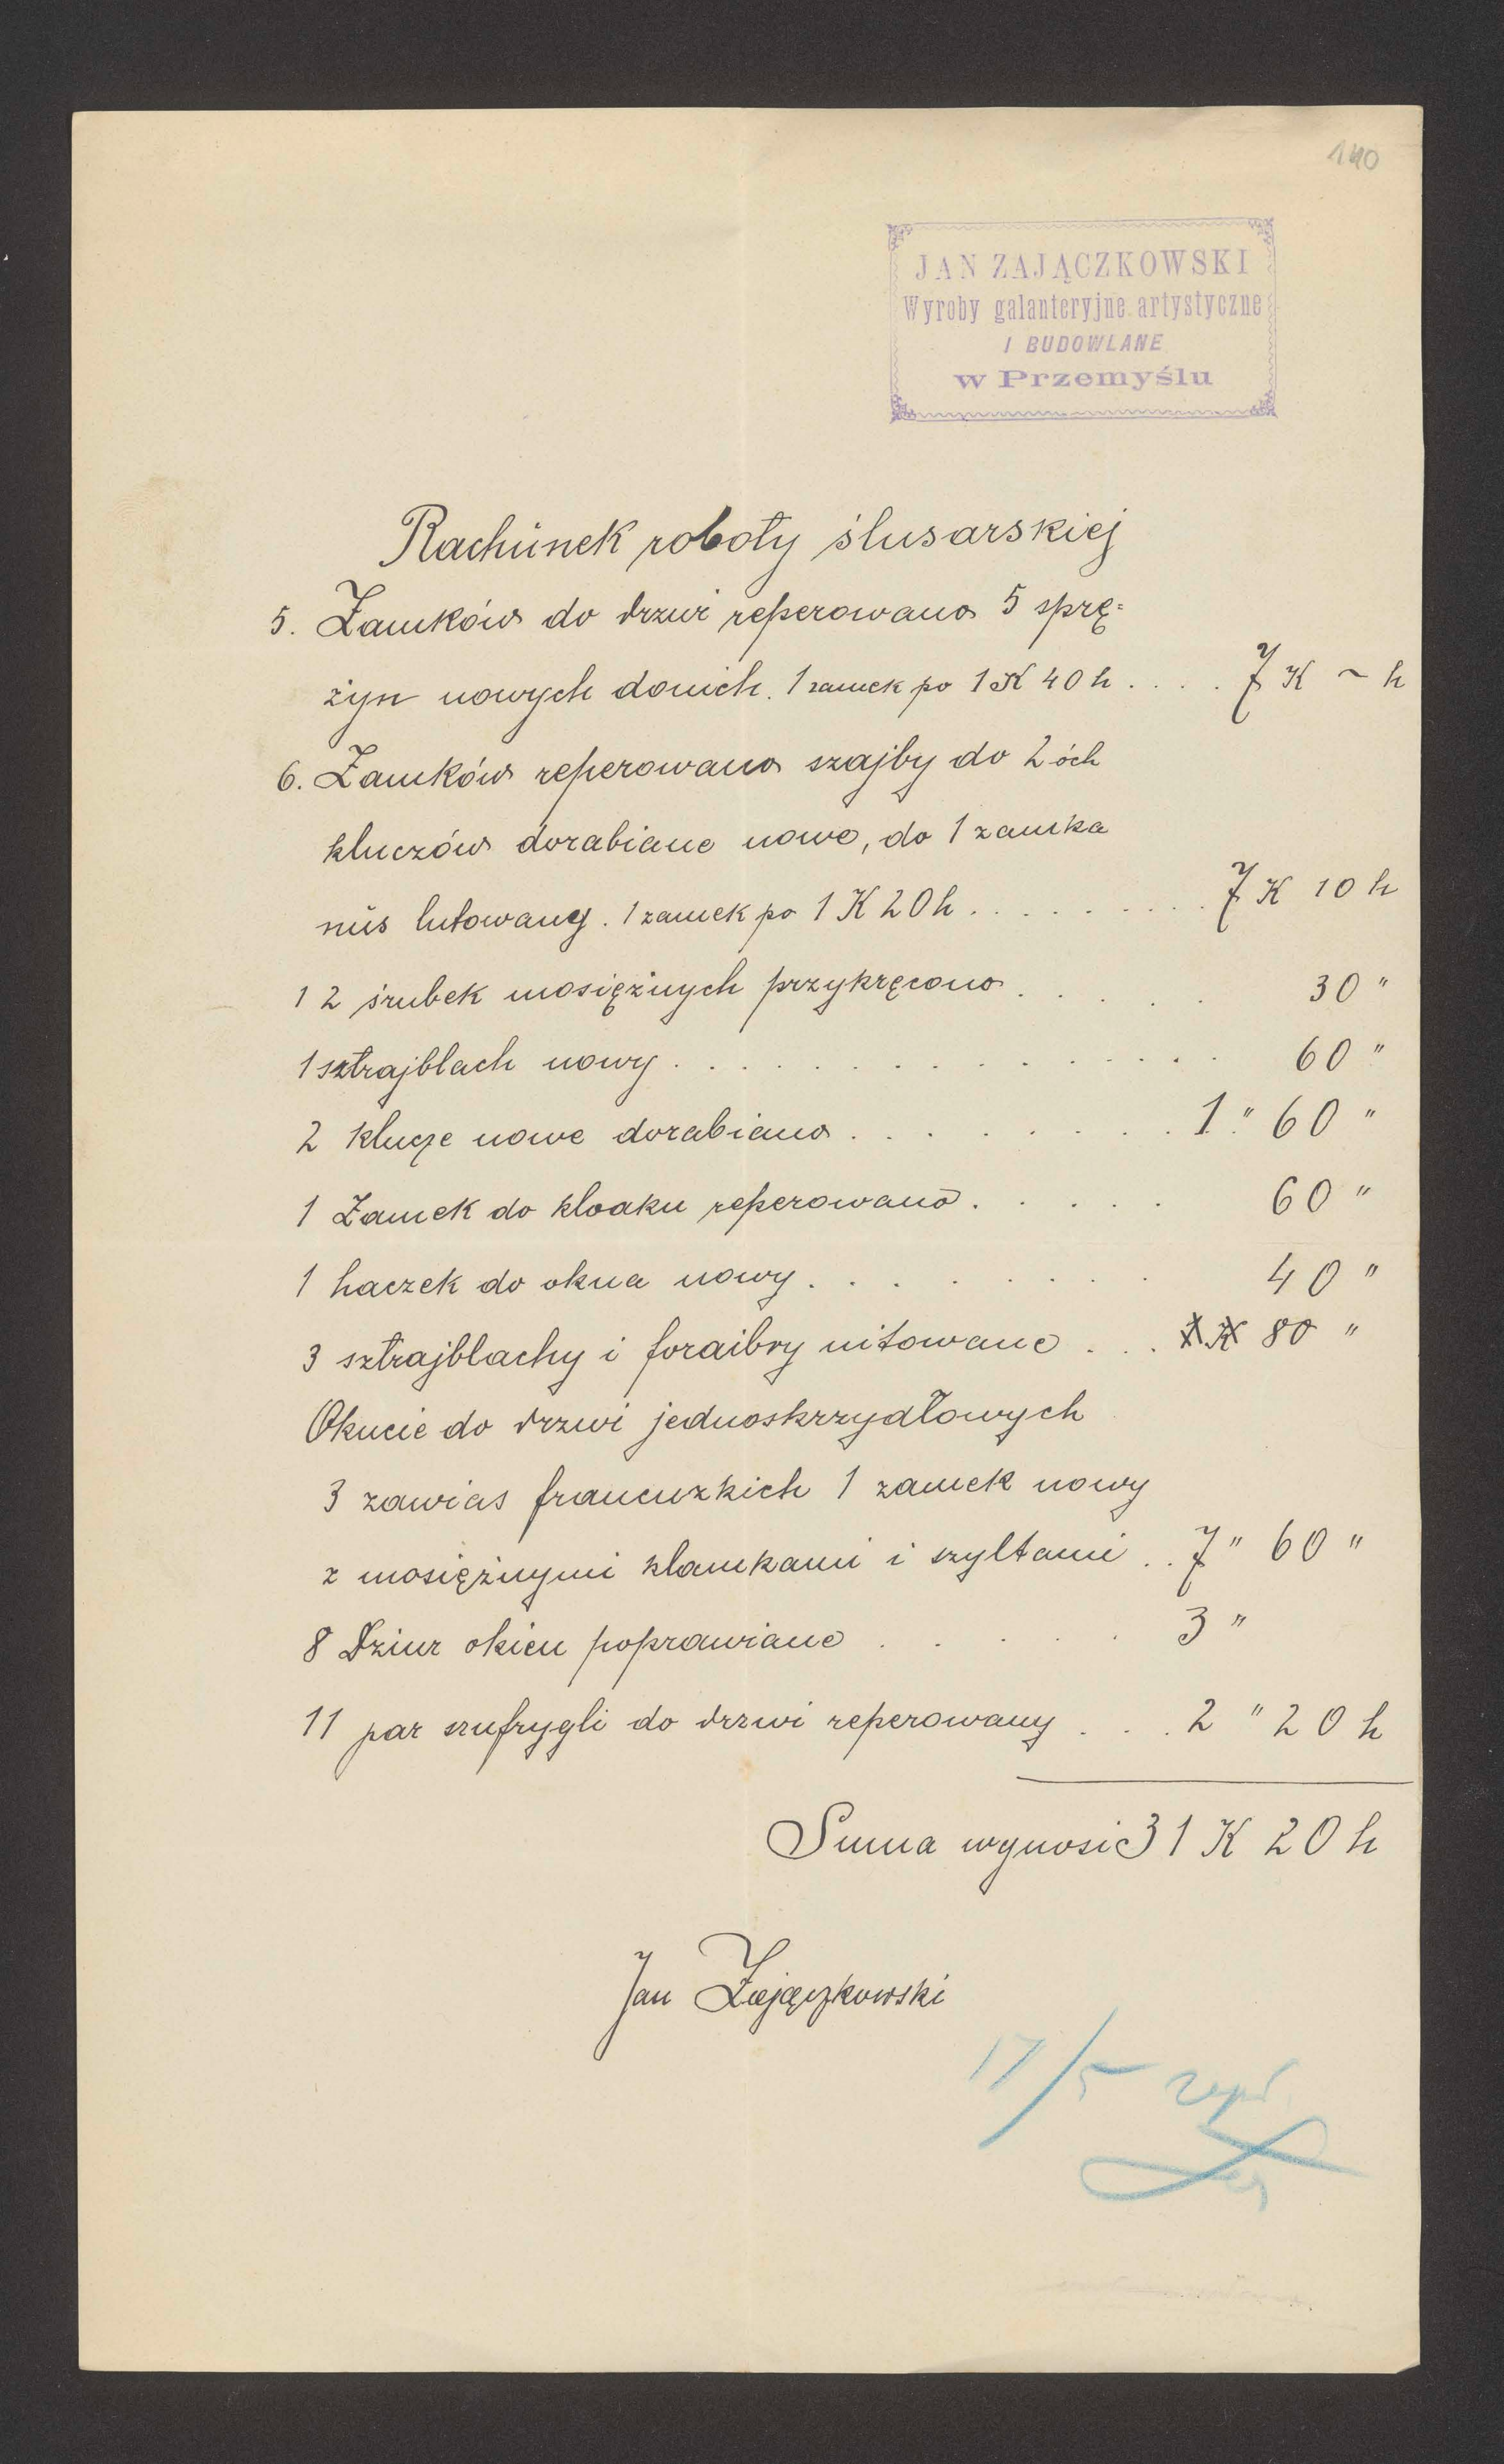 140
JAN ZAJĄCZKOWSKI
Wyroby galanteryjne artystyczne
I BUDOWLANE
w Przemyślu
Rachunek roboty ślusarskiej
5. Zamków do drzwi reperowano 5 sprę=
żyn nowych do nich. 1 zamek po 1 K 40 h . . . . 7 K ~ h
6. Zamków reperowano szajby do 2 óch
kluczów dorabiane nowe, do 1 zamka
nus lutowany. 1 zamek po 1 K 20 h . . . . . . . . . 7 K 10 h
12 śrubek mosiężnych przykręcono . . . . . 30 "
1 sztrajblach nowy . . . . . . . . . . . 60 "
2 klucze nowe dorabiano . . . . . . . . . 1 " 60 "
1 Zamek do kloaku reperowano . . . . . 60 "
1 haczek do okna nowy . . . . . . . 40 "
3 sztrajblachy i foraibry nitowane . . . 80 "
Okucie do drzwi jednoskrzydłowych
3 zawias francuzkich 1 zamek nowy
z mosiężnymi klamkami i szyltami . . 7 " 60 "
8 Dziur okien poprawiane . . . . . 3 "
11 par szufrygli do drzwi reperowany . . . 2 " 20 h
Suma wynosi 31 K 20 h
Jan Zajączkowski
17/5